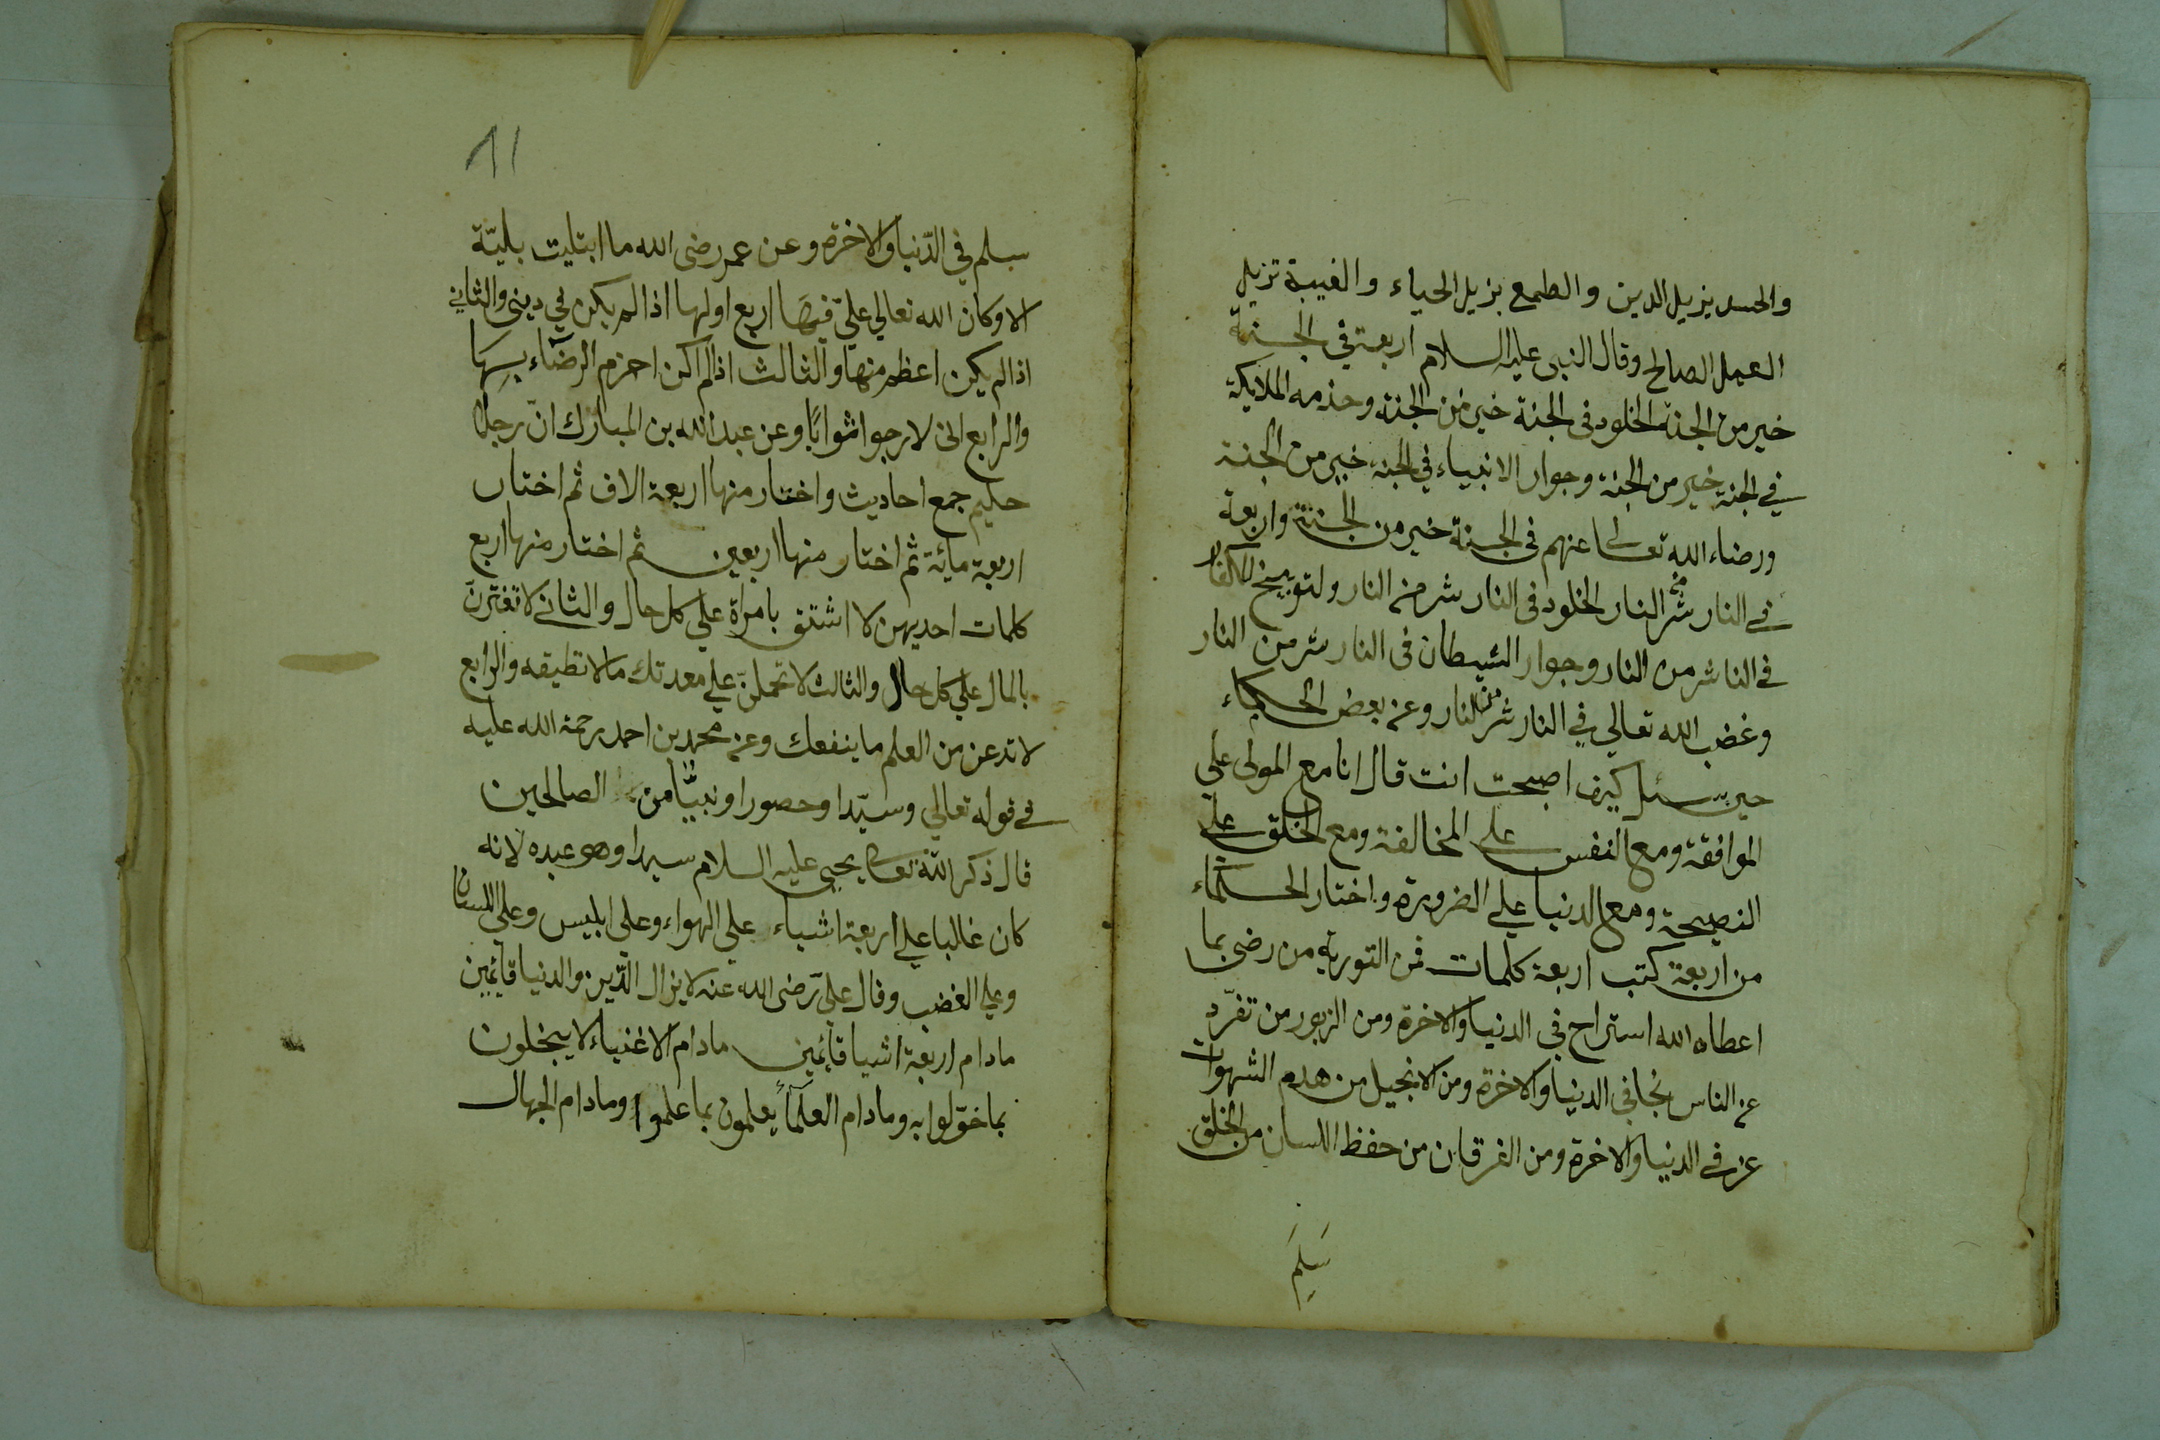 والحسد يزيل الدين والطمع يزيل الحياء والغيبة تزيل
العمل الصالح وقال النبى عليه السلام اربعة فى الجنة
خير من الجنة الخلود فى الجنة خير من الجنة وخذمه الملايكة
في الجنة خير من الجنة وجوار الانبياء في الجنة خير من الجنة
ورضاء الله تعالى عنهم فى الجنة خير من الجنة واربعة
في النار شر من النار الخلود فى النار شر من النار ولتوبيخ الكفار
في النا شر من النار وجوار الشيطان فى النار شر من النار
وغضب الله تعالي في النار شر من النار وعن بعض الحكماء
حين سئل كيف اصبحت انت قال انا مع المولى على
الموافقة ومع النفس على المخالفة ومع الخلق على
النصيحة ومع الدنيا علي الضرورة واختار الحكماء
من اربعة كتب اربعة كلمات فمن التوريه من رضى بما
اعطاه الله استراح فى الدنيا والاخرة ومن الزبور من تفرّد
عن الناس نجا في الدنيا والاخرة ومن الانجيل من هدم الشهوات
عز في الدنيا والاخرة ومن الفرقان من حفظ اللسان من الخلق
سَلِمَ
١١
سلم في الدّنيا والاخرة وعن عمر رضى الله ما ابتليت بليّة
الا وكان الله تعالي عليّ فيهَا اربع اولها اذا لم يكن في دينى والثاني
اذا لم يكن اعظم منها والثالث اذا لم اكن احرم الرضاء بِهَا
والرابع انى لارجوا ثوابًا وعن عبد الله بن المبارك انّ رجلا
حكيم جمع احاديث واختار منها اربعة الاف ثم اختار
اربعة مائة ثم اختار منها اربعين ثم اختار منها اربع
كلمات احديهن لا تثق بامراة علي كل حال والثاني لا تغترنّ
بالمال علي كل حال والثالث لا تحملنّ علي معدتك ما لا تطيقه والرابع
لا تدعن من العلم ما ينفعك وعن محمد بن احمد رحمة الله عليه
في قوله تعالي وسيّدا وحصورا ونبيّا من الصالحين
قال ذكر الله تعالى يحيى عليه السلام سيدا وهو عبده لانه
كان غالبا علي اربعة اشياء علي الهواء وعلى ابليس وعلى اللسان
وعلي الغضب وقال عليّ رضى الله عنه لا يزال الدّين والدنيا قايمين
مادام اربعة اشيا قايمين مادام الاغنياء لا يبخلون
بما خوّلوا به ومادام العلمآء يعلمون بما علموا ومادام الجهال